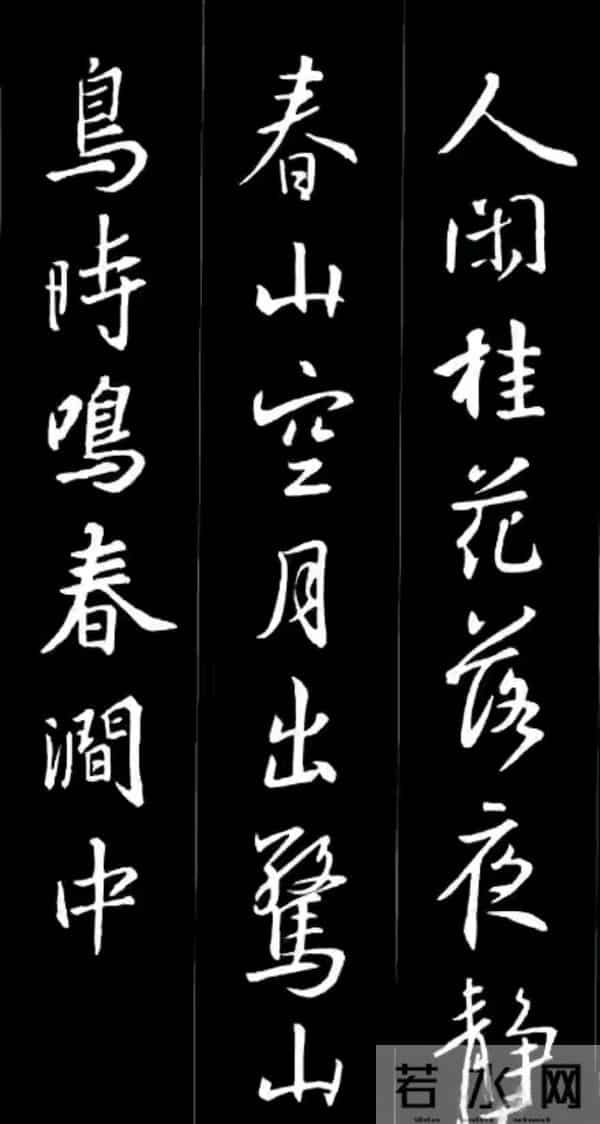 人閑桂花落夜静
春山空月出驚山
鳥時鳴春澗中
若水网